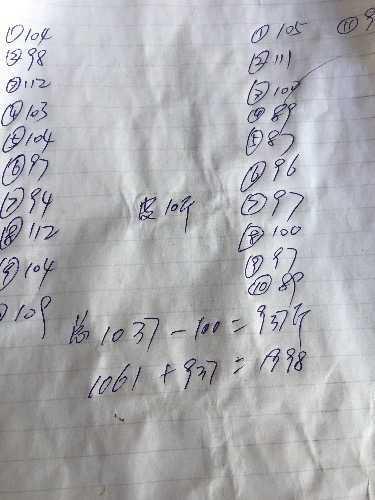 ①104
②98
③112
④103
⑤104
⑥97
⑦94
⑧112
⑨104
109
10斤
①105
②111
③100
④89
⑤87
⑥96
⑦97
⑧100
⑨97
⑩89
⑪9
1037-100=937斤
1061+937=1998